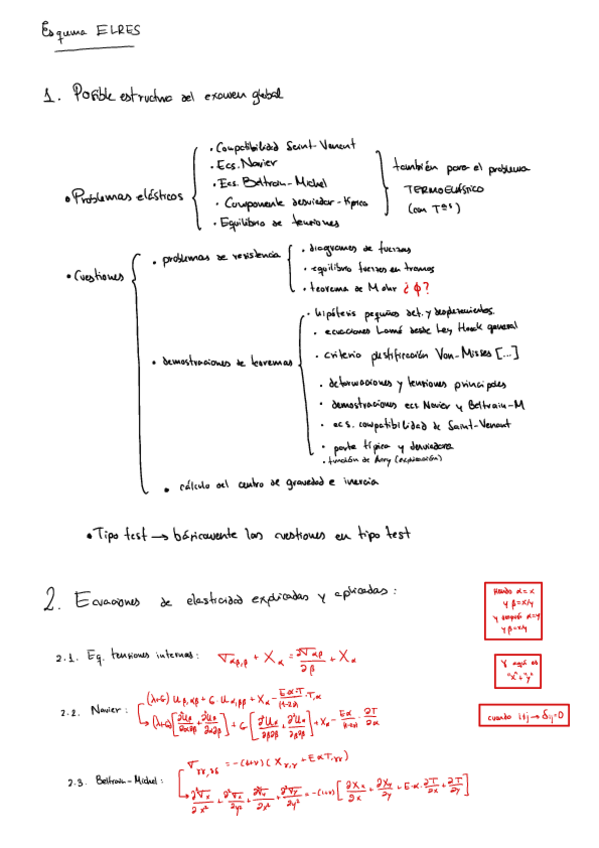 Esquema ELRES
1. Posible estructura del examen global
• Problemas elásticos
• Compatibilidad Saint-Venant
• Ecs. Navier
• Ecs. Beltrain-Michel
• Componente desviador-
• Equilibrio de tensiones
también para el problema
TERMOELÁSTICO
(con Tªs)
• Cuestiones
• problemas de resistencia
• diagramas de fuerzas
• equilibrio fuerzas en tramos
• teorema de Mohr ¿ϕ?
• demostraciones de teoremas
• hipótesis pequeñas def. y desplazamientos.
• ecuaciones Lamé desde Ley Hook general
• criterio plastificación Von-Misses [...]
• deformaciones y tensiones principales
• demostraciones ecs Navier y Beltrain-M
• ecs. compatibilidad de Saint-Venant
• parte típica y desviadora
• función de Airy (explicación)
• cálculo del centro de gravedad e inercia
• Tipo test → básicamente las cuestiones en tipo test
2. Ecuaciones de elasticidad explicadas y aplicadas:
2.1. Eq. tensiones internas: σαβ,β + Xα = ∂σαβ/∂β + Xα
2.2. Navier: (λ+G) uβ,αβ + G·uα,ββ + Xα - Eα·T/(1-2ν)·T,α
↳ (λ+G)[∂²uβ/∂α∂β + ∂²uβ/∂α∂β] + G[∂²uα/∂β∂β + ∂²uα/∂β∂β] + Xα - Eα/(1-2ν)·∂T/∂α
2.3. Beltrain-Michel: σγγ,δδ = -(1+ν)(Xγ,γ + EαT,γγ)
↳ ∂²σx/∂x² + ∂²σx/∂y² + ∂²σy/∂x² + ∂²σy/∂y² = -(1+ν)[∂Xx/∂x + ∂Xy/∂y + E·α·∂T/∂x + ∂T/∂y]
α=x
y β=x/y
y después α=y
y β=x/y
y aquí es
"x"+"y"
cuando i≠j → δij=0